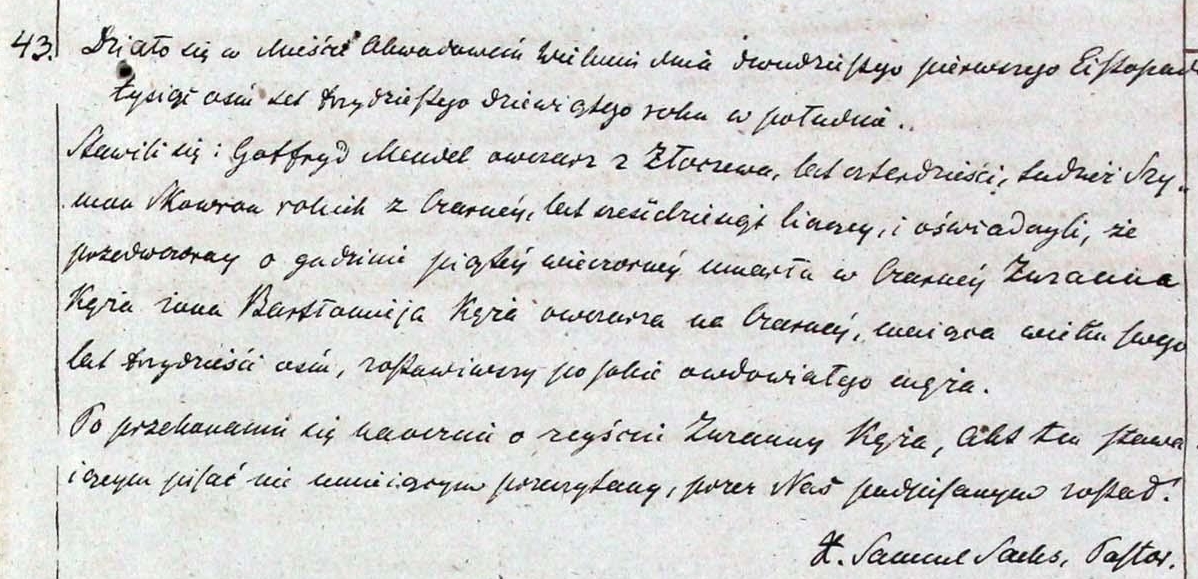 43. Działo się w Mieście Obwodowém Wieluniu dnia dwudziestego pierwszego Listopada
tysiąc ośm set trzydziestego dziewiątego roku w południe..
Stawili się: Gottfryd Mendel owczarz z Złoczewa, lat czterdzieści, tudzież Szy-
mon Skowron rolnik z Czarnéy, lat sześćdziesiąt liczący, i oświadczyli, że
przedwczoray o godzinie piątéy wieczornéy umarła w Czarnéy Zuzanna
Kęzia żona Bartłomieja Kęzia owczarza na Czarnéy, maiąca wieku swego
lat trzydzieści ośm, zostawiwszy po sobie owdowiałego męża.
Po przekonaniu się naocznie o zejściu Zuzanny Kęzia, Akt ten stawa-
iącym pisać nie umieiącym przeczytany, przez Nas podpisanym został.
X. Samuel Sachs, Pastor.